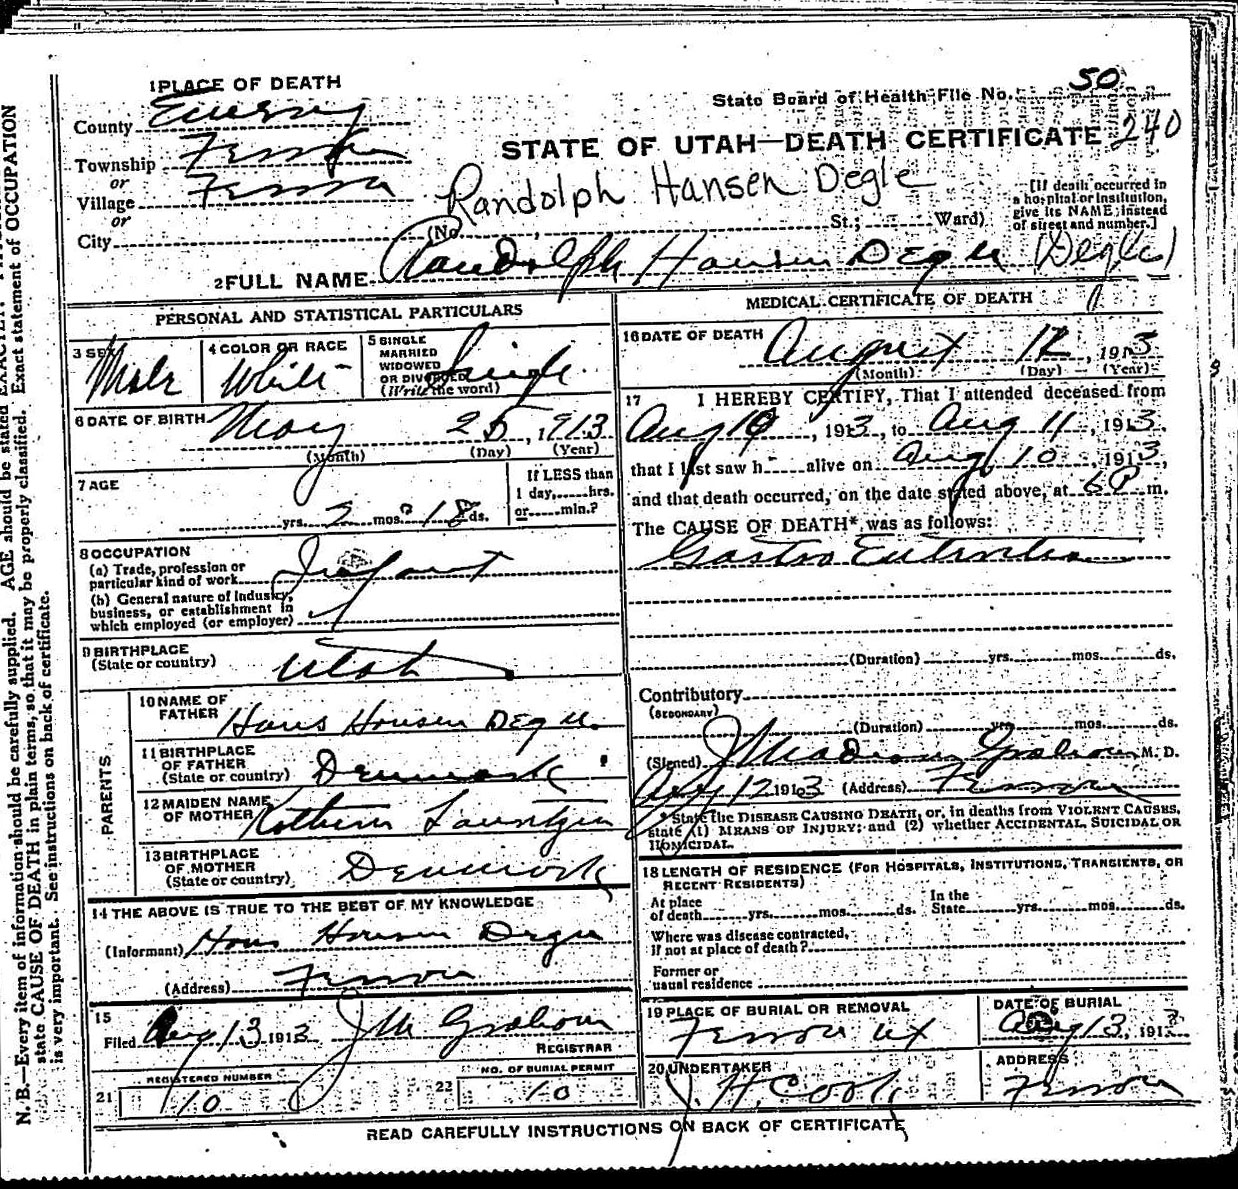 1 PLACE OF DEATH
50
State Board of Health File No.
County Emery
240
STATE OF UTAH—DEATH CERTIFICATE
Township Ferron
or
Village Ferron
Randolph Hansen Degle
[If death occurred in a hospital or institution, give its NAME instead of street and number.]
or
City (No. St.; Ward)
2 FULL NAME Randolph Hansen Degle (Degle)
PERSONAL AND STATISTICAL PARTICULARS
3 SEX Male
4 COLOR OR RACE White
5 SINGLE MARRIED WIDOWED OR DIVORCED (Write the word) Single
6 DATE OF BIRTH May 25, 1913
(Month) (Day) (Year)
7 AGE
yrs. 2 mos. 18 ds.
If LESS than 1 day, hrs. or min.?
8 OCCUPATION
(a) Trade, profession or particular kind of work Infant
(b) General nature of industry, business, or establishment in which employed (or employer)
9 BIRTHPLACE (State or country) Utah
PARENTS
10 NAME OF FATHER Hans Hansen Degle
11 BIRTHPLACE OF FATHER (State or country) Denmark
12 MAIDEN NAME OF MOTHER
13 BIRTHPLACE OF MOTHER (State or country) Denmark
14 THE ABOVE IS TRUE TO THE BEST OF MY KNOWLEDGE
(Informant) Hans Hansen Degle
(Address) Ferron
15
Filed Aug 13 1913 J M Graham
REGISTRAR
21 REGISTERED NUMBER 10
22 NO. OF BURIAL PERMIT 10
MEDICAL CERTIFICATE OF DEATH
16 DATE OF DEATH August 12, 1913
(Month) (Day) (Year)
17 I HEREBY CERTIFY, That I attended deceased from
Aug 10, 1913, to Aug 11, 1913,
that I last saw h alive on Aug 10, 1913,
and that death occurred, on the date stated above, at 6 P m.
The CAUSE OF DEATH* was as follows:
Gastro Enteritis
(Duration) yrs. mos. ds.
Contributory
(SECONDARY)
(Duration) yrs. mos. ds.
(Signed) J Madison Graham M. D.
Aug 12 1913 (Address) Ferron
* State the DISEASE CAUSING DEATH, or, in deaths from VIOLENT CAUSES, state (1) MEANS OF INJURY; and (2) whether ACCIDENTAL, SUICIDAL OR HOMICIDAL.
18 LENGTH OF RESIDENCE (FOR HOSPITALS, INSTITUTIONS, TRANSIENTS, OR RECENT RESIDENTS)
At place of death yrs. mos. ds. In the State yrs. mos. ds.
Where was disease contracted, if not at place of death?
Former or usual residence
19 PLACE OF BURIAL OR REMOVAL
Ferron ut
DATE OF BURIAL
Aug 13, 1913
20 UNDERTAKER
J. H. Cook
ADDRESS
Ferron
READ CAREFULLY INSTRUCTIONS ON BACK OF CERTIFICATE
N. B.—Every item of information should be carefully supplied. AGE should be stated EXACTLY.
state CAUSE OF DEATH in plain terms, so that it may be properly classified. Exact statement of OCCUPATION
is very important. See instructions on back of certificate.